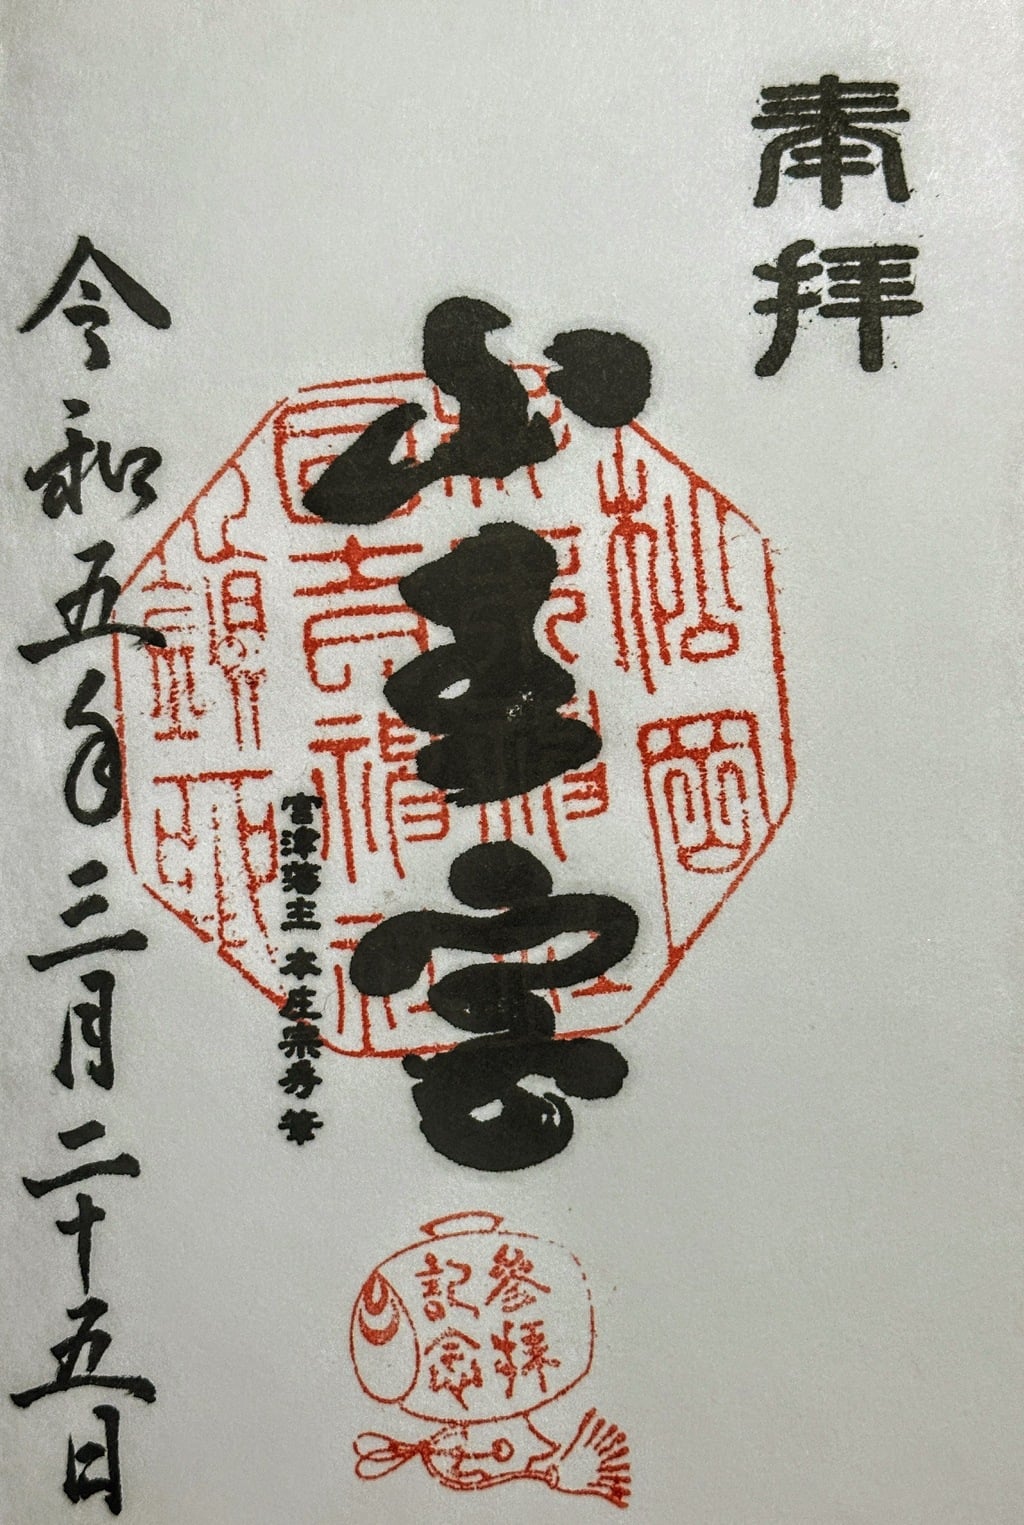 奉拝
山王宮
宮津藩主 本庄宗秀 筆
令和五年三月二十五日
參拝
記念